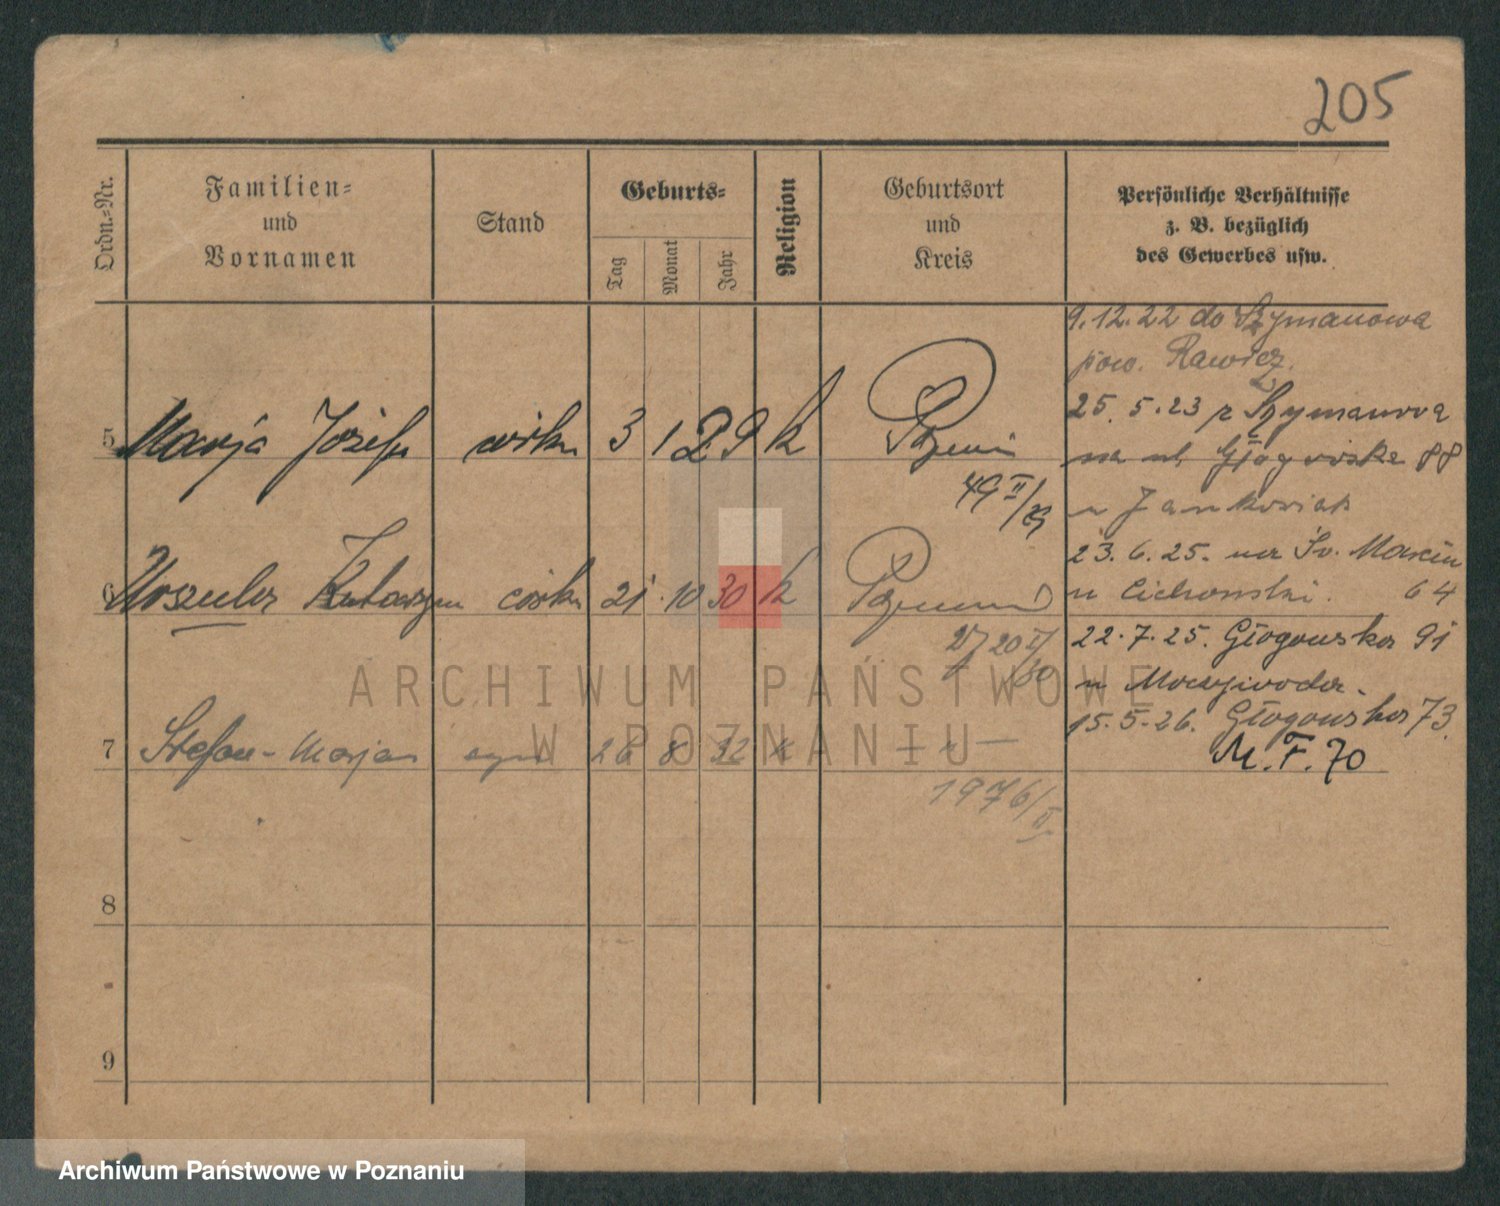 205
Ordn.=Nr.
Familien=
und
Vornamen
Stand
Geburts=
Tag
Monat
Jahr
Religion
Geburtsort
und
Kreis
Persönliche Verhältnisse
z. B. bezüglich
des Gewerbes usw.
9.12.22 do Szymanowa
pow. Rawicz.
25.5.23 z Szymanowa
na ul. Głogowska 88
u Jankowiak
23.6.25. na Św. Marcin
u Cichonski. 64
22.7.25. Głogowska 91
u
15.5.26. Głogowska 73.
M.F.70
5 Marja Józefa córka 3 1 29 k
49 II/29
6 Urszula Katarzyna córka 21 10 30 k
7 Stefan-Marjan syn 28 8 32 k
1976/II
8
9
ARCHIWUM PAŃSTWOWE
W POZNANIU
Archiwum Państwowe w Poznaniu